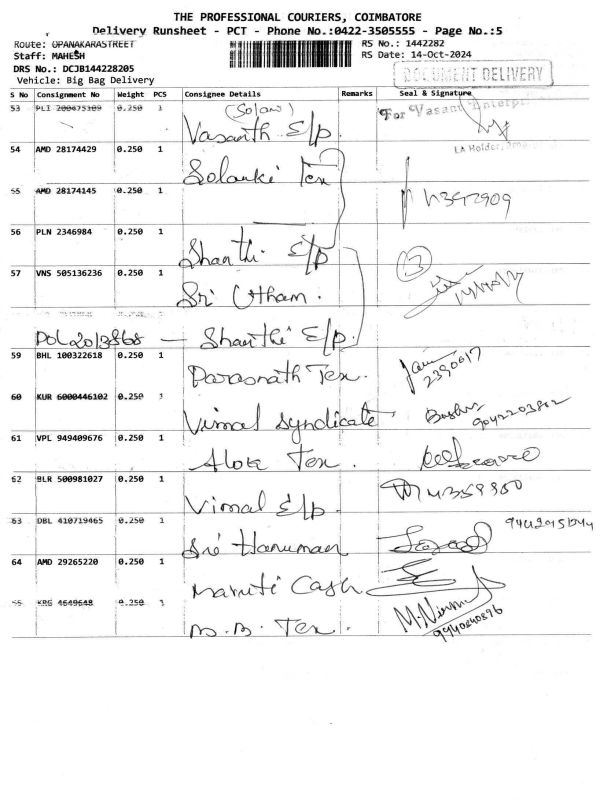 THE PROFESSIONAL COURIERS, COIMBATORE
Delivery Runsheet - PCT - Phone No.:0422-3505555 - Page No.:5
Route: OPANAKARASTREET RS No.: 1442282
Staff: MAHESH RS Date: 14-Oct-2024
DRS No.: DCJB144228205
Vehicle: Big Bag Delivery
DOCUMENT DELIVERY
S No Consignment No Weight PCS Consignee Details Remarks Seal & Signature
53 PLI 200475109 0.250 1 Vasanth E/p. For Vasant Enterpri
54 AMD 28174429 0.250 1 Solanki Tex
55 AMD 28174145 0.250 1
56 PLN 2346984 0.250 1 Shanthi E/p 3
57 VNS 505136236 0.250 1 Sri Utham.
POL2013868 — Shanthi E/p.
59 BHL 100322618 0.250 1 Parasnath Tex. Jain 2390617
60 KUR 6000446102 0.250 1 Vimal Syndicate 9042203802
61 VPL 949409676 0.250 1 Alok Tex.
62 BLR 500981027 0.250 1 Vimal E/p.
63 DBL 410719465 0.250 1 Sri Hanuman
64 AMD 29265220 0.250 1 Maruti Cash
KRG 4649648 0.250 1 M.B. Tex. 9940840896